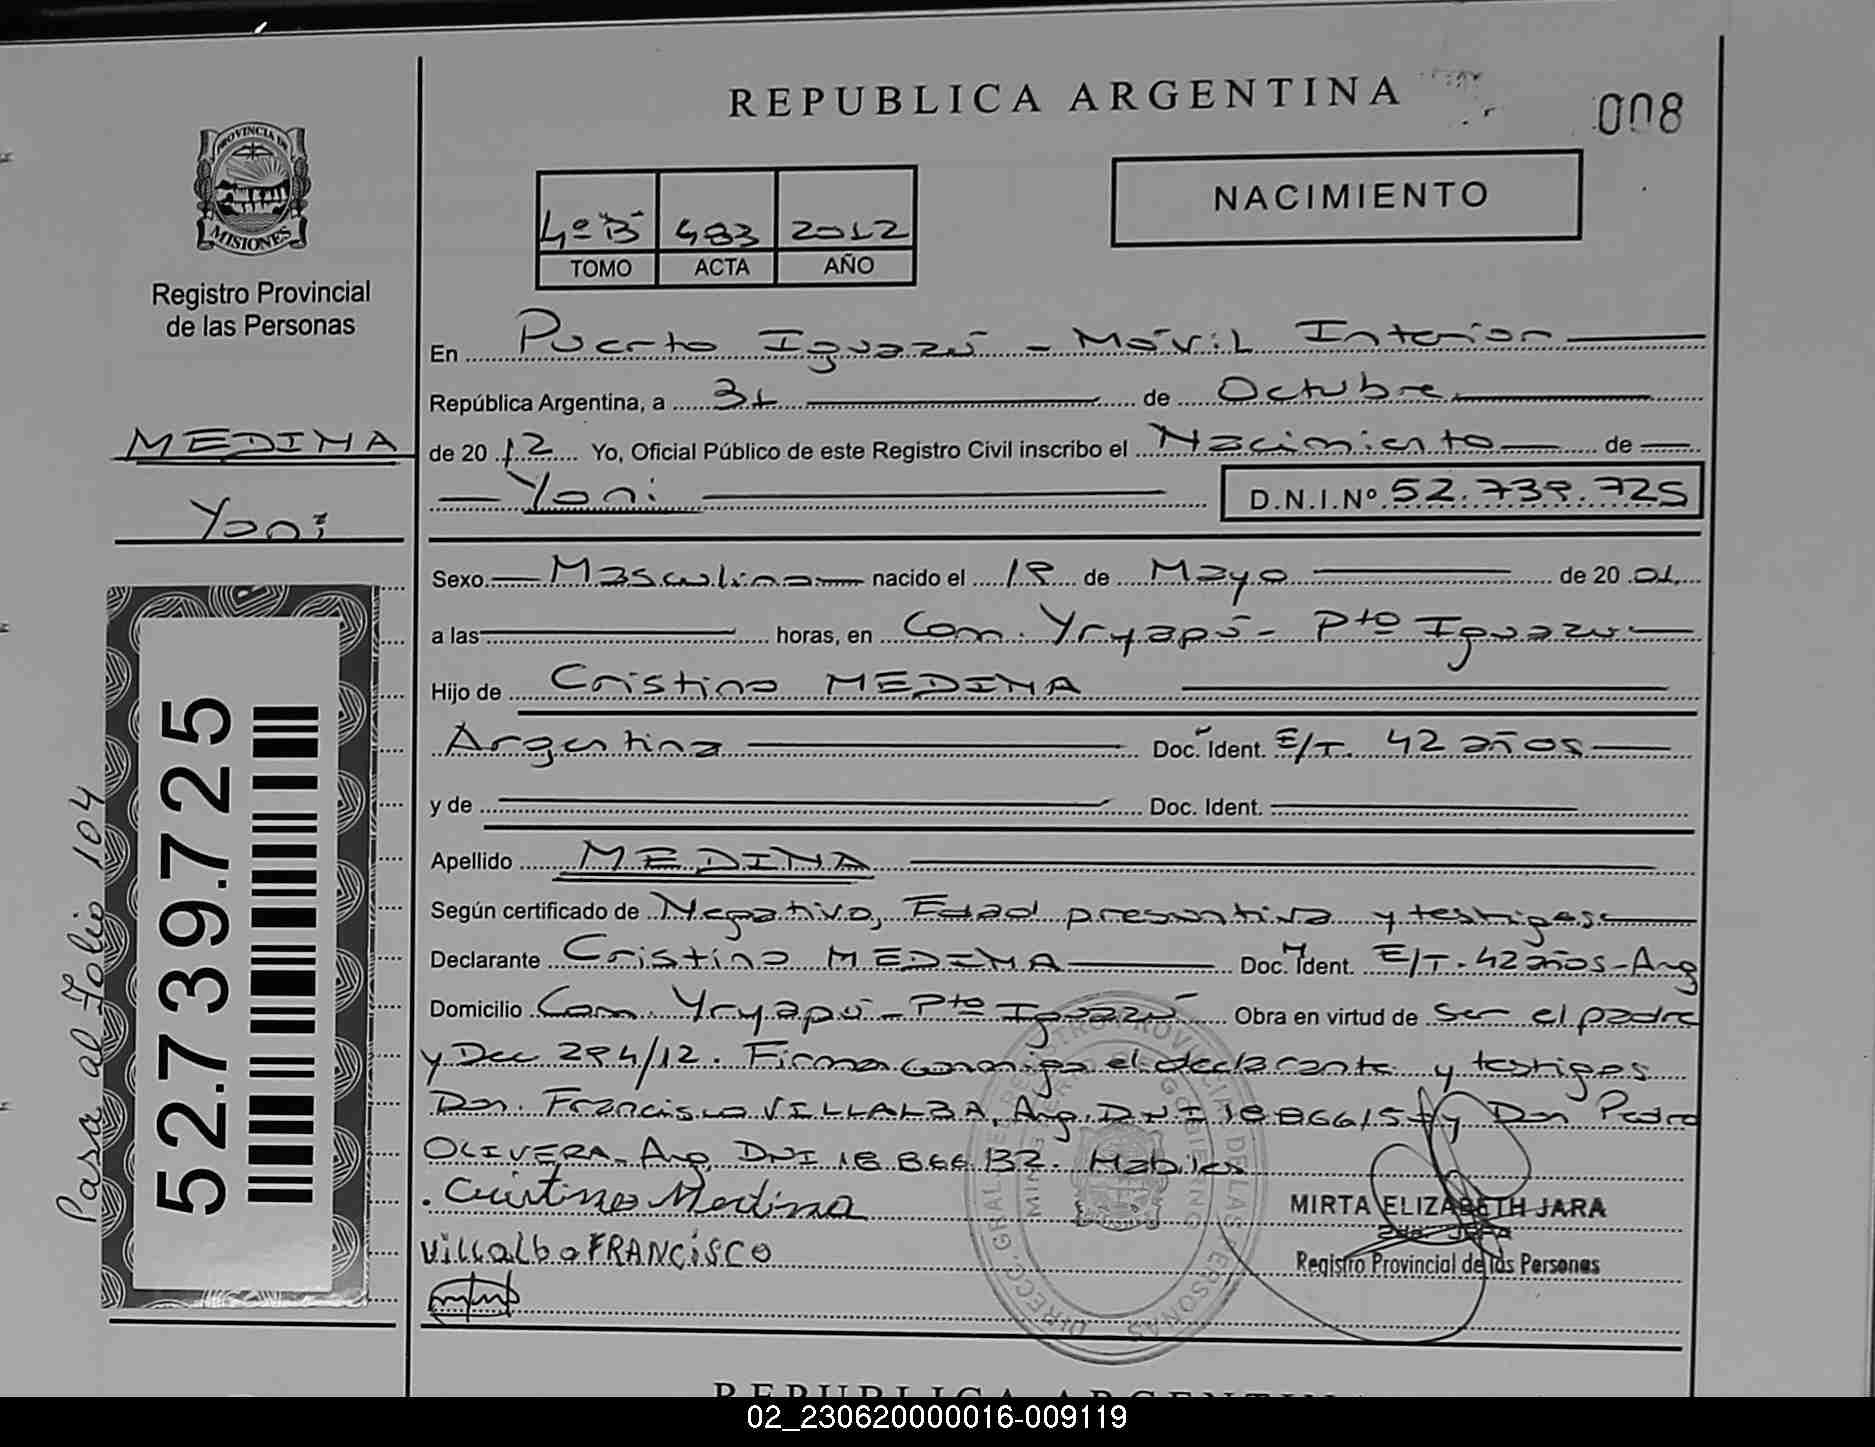 REPUBLICA ARGENTINA
008
PROVINCIA DE
MISIONES
Registro Provincial
de las Personas
4º "B" 483 2012
TOMO ACTA AÑO
NACIMIENTO
En Puerto Iguazú - Móvil Interior
República Argentina, a 31 de Octubre
de 2012 Yo, Oficial Público de este Registro Civil inscribo el Nacimiento de
Yoni D.N.I.Nº 52.739.725
MEDINA
Yoni
Sexo Masculino nacido el 19 de Mayo de 2001
a las horas, en Com. Yryapú - Pto Iguazú
Hijo de Cristino MEDINA
Argentina Doc. Ident. E/T. 42 años
y de Doc. Ident.
Apellido MEDINA
Según certificado de Negativo, Edad presuntiva y testigos
Declarante Cristino MEDINA Doc. Ident. E/T. 42 años - Arg
Domicilio Com. Yryapú - Pto Iguazú Obra en virtud de ser el padre
y Dec. 294/12. Firman conmigo el declarante y testigos
Don Francisco VILLALBA, Arg. DNI 18.866.157 y Don Pedro
OLIVERA - Arg. DNI 18.866.132. Hábiles
Cristino Medina
Villalba FRANCISCO
MIRTA ELIZABETH JARA
2da. JEFA
Registro Provincial de las Personas
DIRECC. GRAL. DE REGISTRO PROVINCIAL DE LAS PERSONAS
GOBIERNO
52.739.725
Pasa al Folio 104
REPUBLICA ARGENTINA
02_230620000016-009119